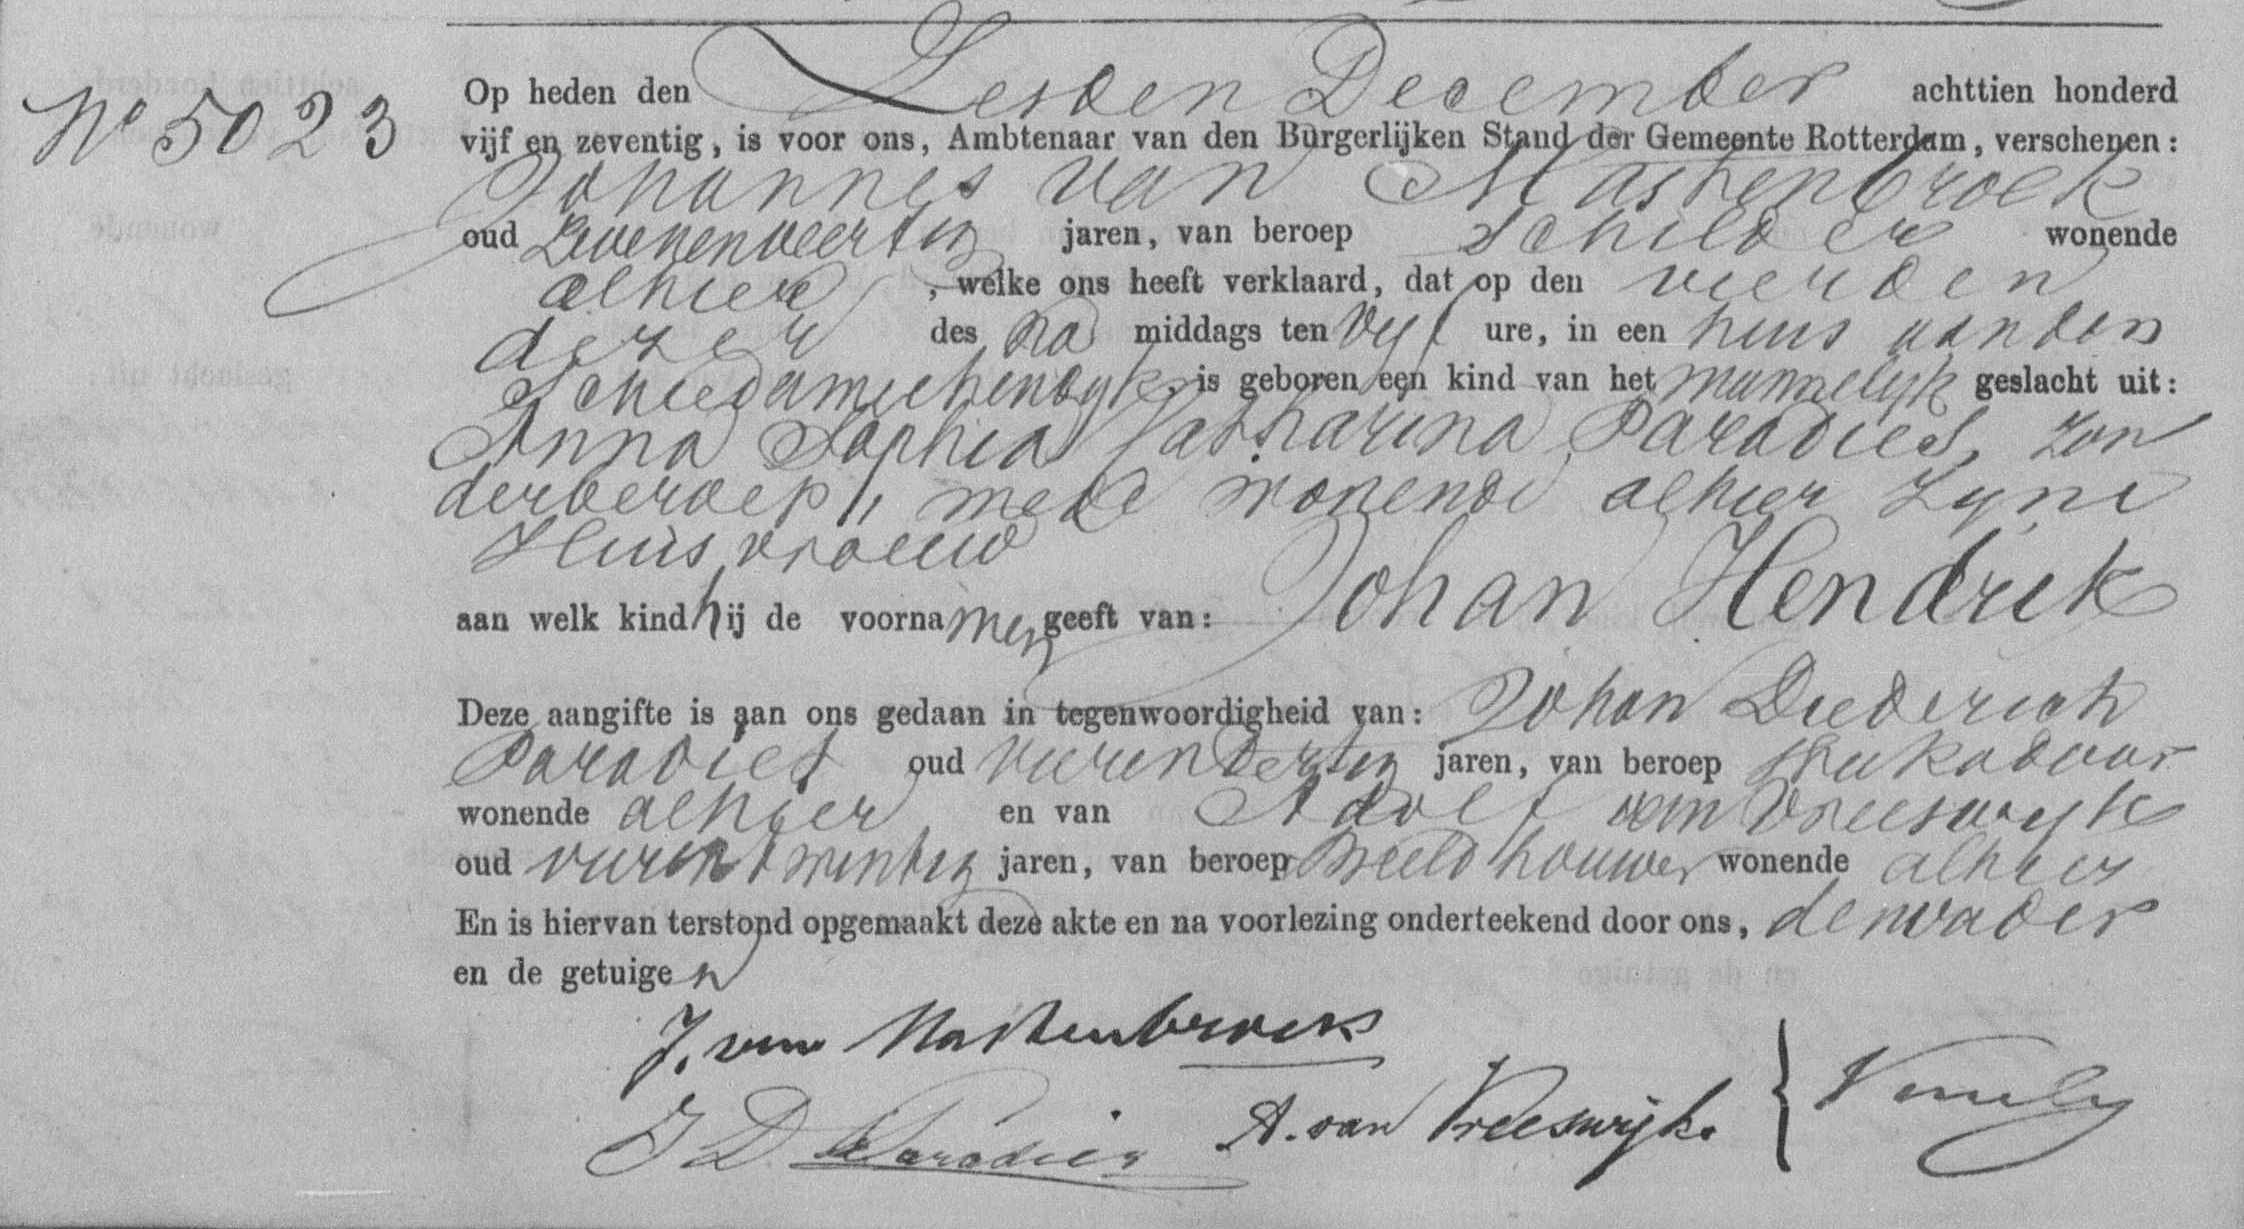 No 5023
Op heden den Zesden December achttien honderd
vijf en zeventig, is voor ons, Ambtenaar van den Burgerlijken Stand der Gemeente Rotterdam, verschenen:
Johannes van Mastenbroek
oud Zevenenveertig jaren, van beroep Schilder wonende
alhier, welke ons heeft verklaard, dat op den vierden
dezer des na middags ten vyf ure, in een huis aan den
Schiedamschendyk, is geboren een kind van het mannelyk geslacht uit:
Anna Sophia Catharina Paradies, zon
der beroep, mede wonende alhier zyne
Huisvrouw
aan welk kind hij de voornamen geeft van: Johan Hendrik
Deze aangifte is aan ons gedaan in tegenwoordigheid van: Johan Diederich
Paradies oud vierendertig jaren, van beroep Stukadoor
wonende alhier en van Adolf van Vreeswyk
oud vierentwintig jaren, van beroep Beeldhouwer wonende alhier
En is hiervan terstond opgemaakt deze akte en na voorlezing onderteekend door ons, den vader
en de getuigen
J. van Mastenbroek
J D Paradies A. van Vreeswijk.